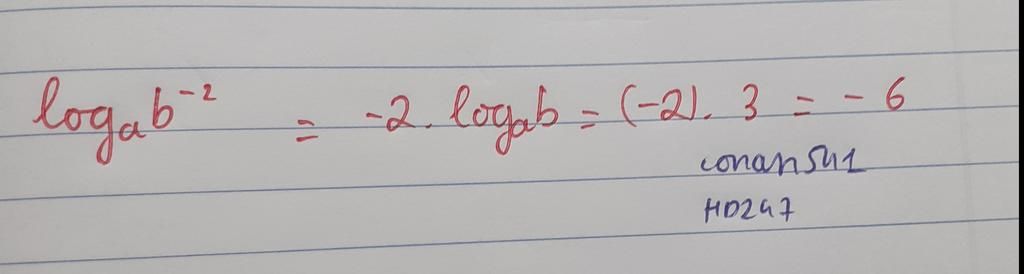 logₐb⁻² = -2. logₐb = (-2). 3 = - 6
conan541
HD247